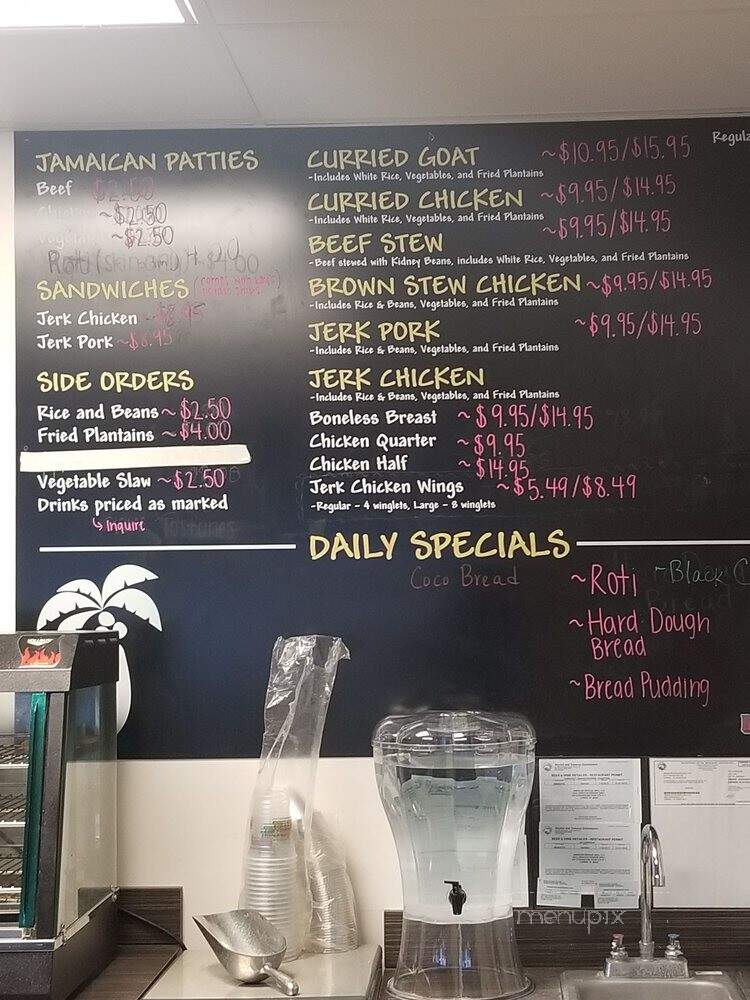 JAMAICAN PATTIES
Beef $2.50
~$2.50
~$2.50
Roti
SANDWICHES
Jerk Chicken
Jerk Pork ~$6.95
SIDE ORDERS
Rice and Beans ~ $2.50
Fried Plantains ~ $4.00
Vegetable Slaw ~$2.50
Drinks priced as marked
Inquire
CURRIED GOAT ~$10.95/$15.95
-Includes White Rice, Vegetables, and Fried Plantains
CURRIED CHICKEN ~$9.95/$14.95
-Includes White Rice, Vegetables, and Fried Plantains
BEEF STEW ~$9.95/$14.95
-Beef stewed with Kidney Beans, includes White Rice, Vegetables, and Fried Plantains
BROWN STEW CHICKEN ~$9.95/$14.95
-Includes Rice & Beans, Vegetables, and Fried Plantains
JERK PORK ~$9.95/$14.95
-Includes Rice & Beans, Vegetables, and Fried Plantains
JERK CHICKEN
-Includes Rice & Beans, Vegetables, and Fried Plantains
Boneless Breast ~ $9.95/$14.95
Chicken Quarter ~ $9.95
Chicken Half ~ $14.95
Jerk Chicken Wings ~$5.49/$8.49
-Regular - 4 winglets, Large - 8 winglets
DAILY SPECIALS
Coco Bread
~Roti ~Black C
~Hard Dough
Bread
~Bread Pudding
menupix